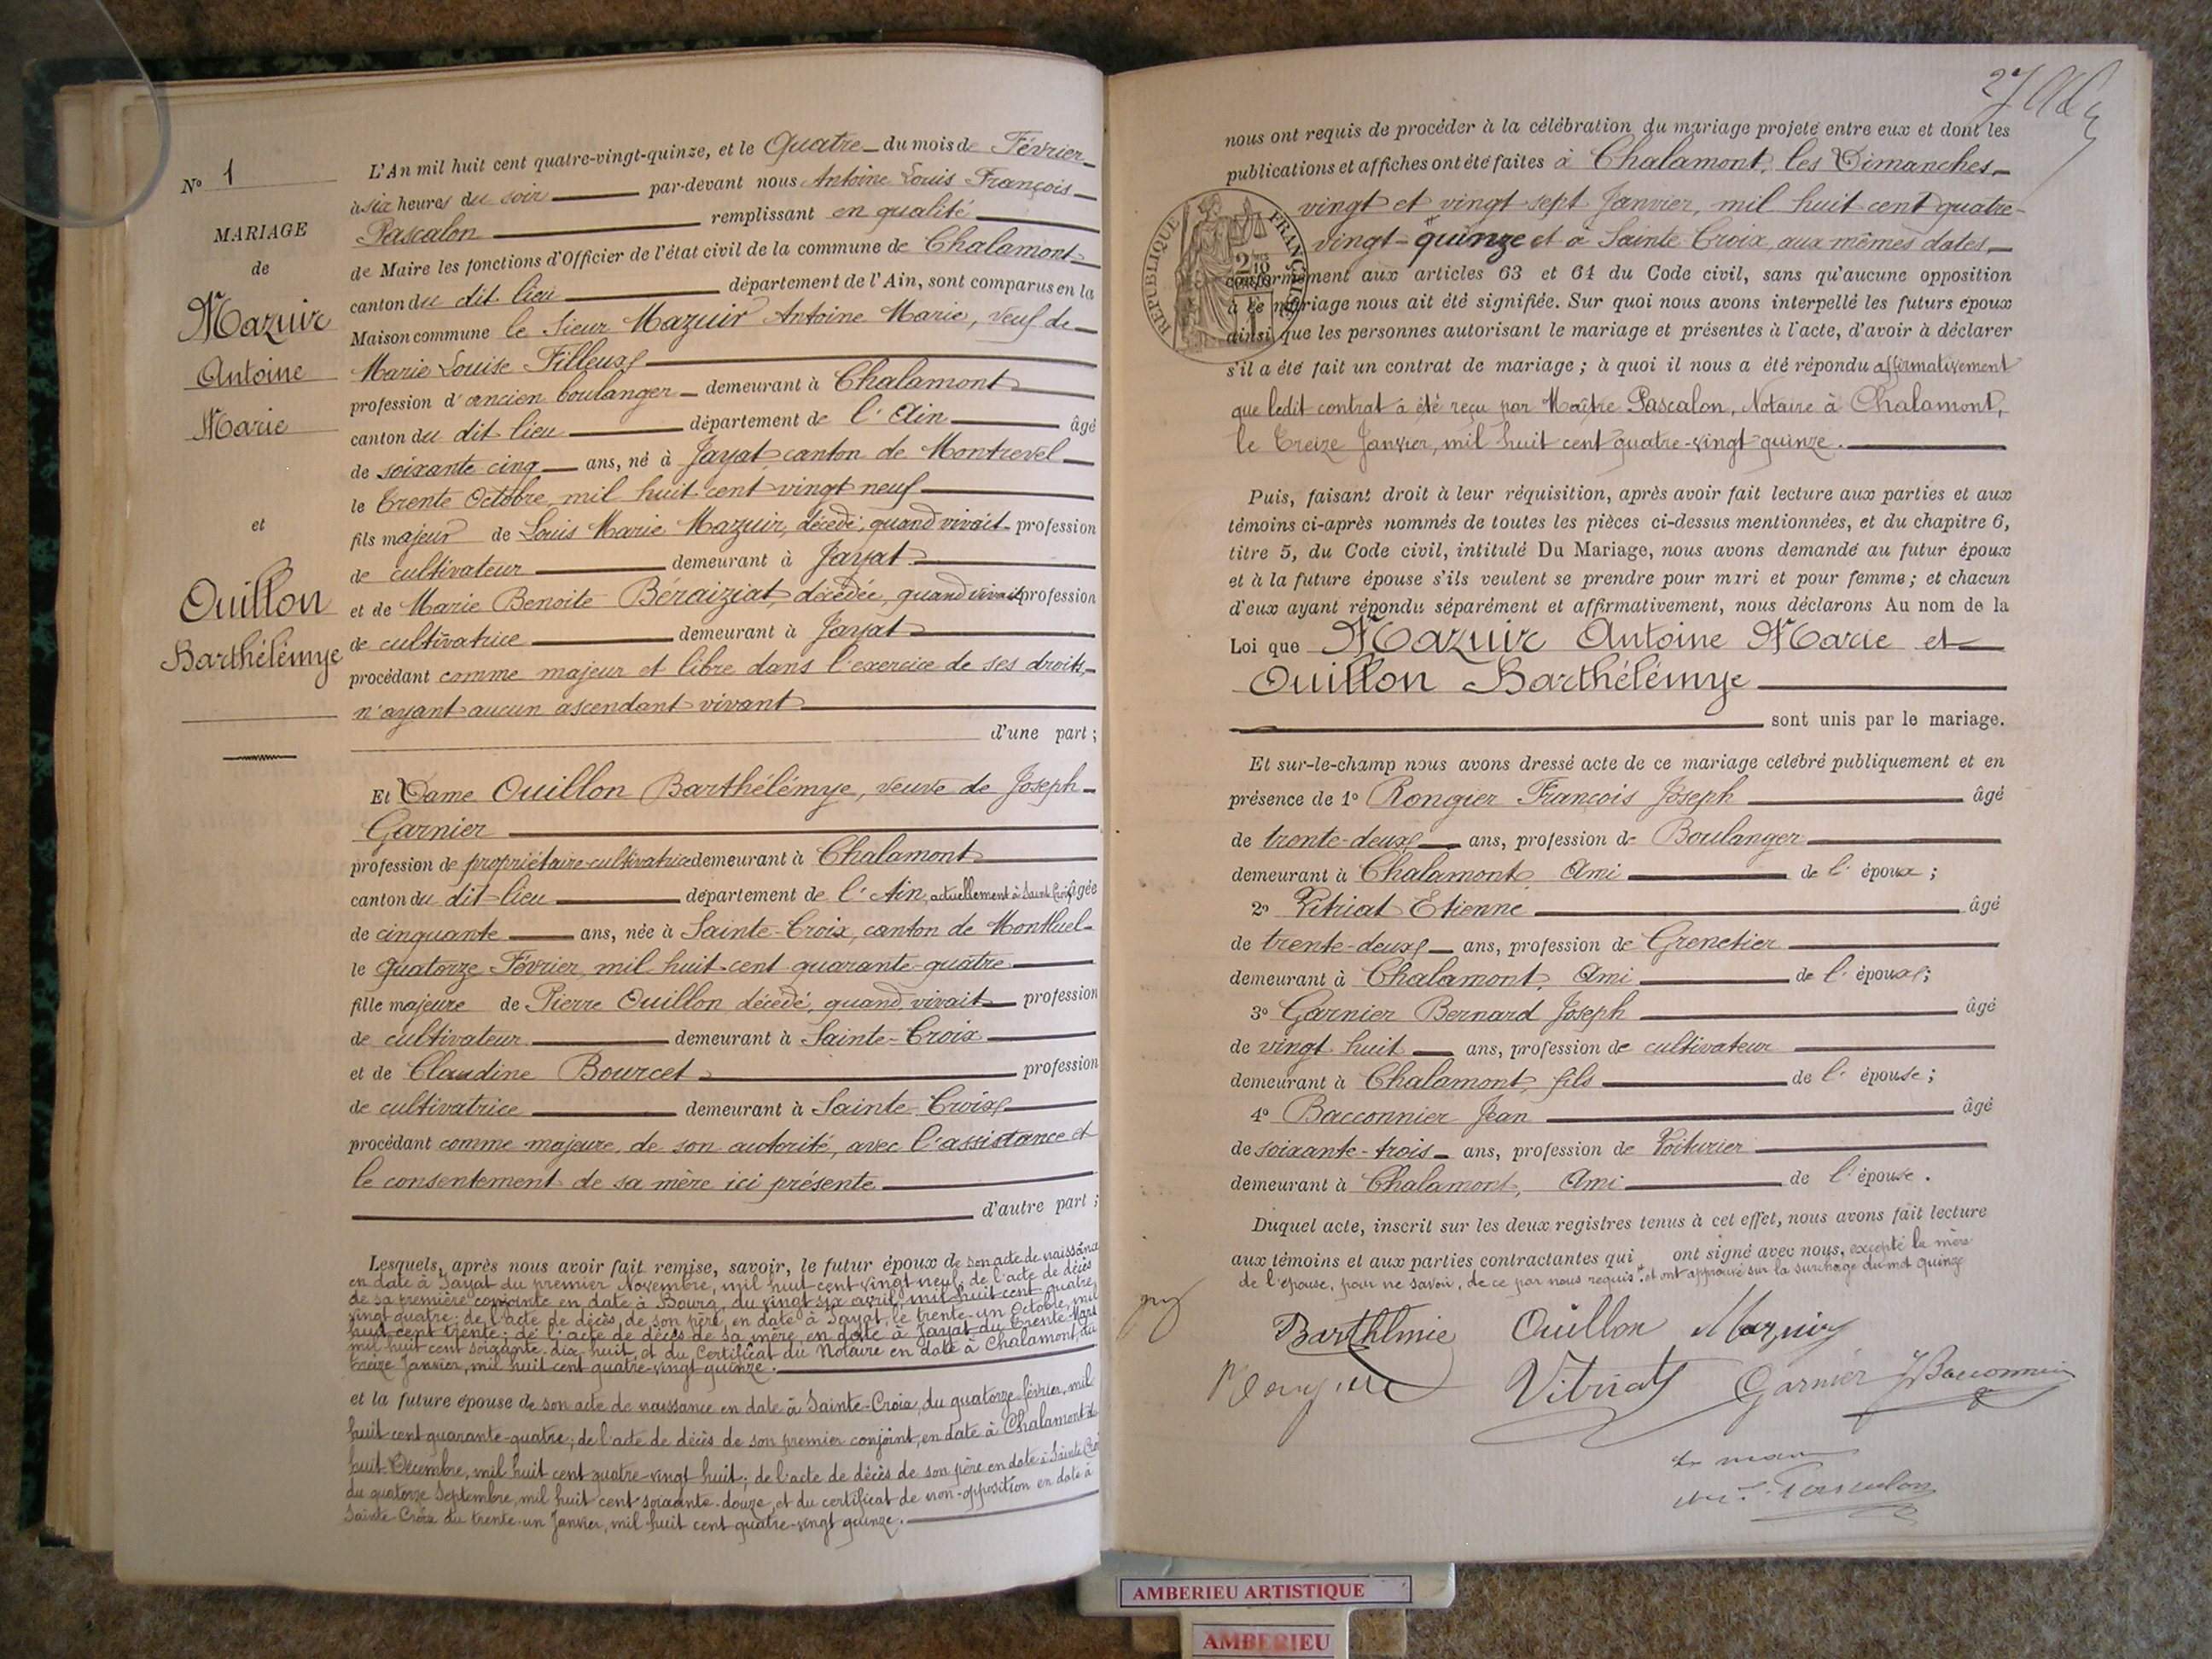 N° 1
MARIAGE
de
Mazuir
Antoine
Marie
et
Ouillon
Barthélémye
L'An mil huit cent quatre-vingt-quinze, et le Quatre du mois de Février
à six heures du soir par-devant nous Antoine Louis François
Pascalon remplissant en qualité
de Maire les fonctions d'Officier de l'état civil de la commune de Chalamont
canton du dit lieu département de l'Ain, sont comparus en la
Maison commune le Sieur Mazuir Antoine Marie, veuf de
Marie Louise Filleux
profession d'ancien boulanger demeurant à Chalamont
canton du dit lieu département de l'Ain âgé
de soixante cinq ans, né à Jayat canton de Montrevel
le trente Octobre mil huit cent vingt neuf
fils majeur de Louis Marie Mazuir, décédé, quand vivait profession
de cultivateur demeurant à Jayat
et de Marie Benoite Béraiziat, décédée, quand vivait profession
de cultivatrice demeurant à Jayat
procédant comme majeur et libre dans l'exercice de ses droits,
n'ayant aucun ascendant vivant
d'une part ;
Et Dame Ouillon Barthélémye, veuve de Joseph
Garnier
profession de propriétaire-cultivatrice demeurant à Chalamont
canton du dit-lieu département de l'Ain, actuellement à Sainte Croix âgée
de cinquante ans, née à Sainte-Croix, canton de Montluel
le quatorze Février mil huit-cent quarante-quatre
fille majeure de Pierre Ouillon décédé, quand vivait profession
de cultivateur demeurant à Sainte-Croix
et de Claudine Bourcet profession
de cultivatrice demeurant à Sainte-Croix
procédant comme majeure de son autorité, avec l'assistance et
le consentement de sa mère ici présente
d'autre part ;
Lesquels, après nous avoir fait remise, savoir, le futur époux de son acte de naissance
en date à Jayat du premier Novembre, mil huit-cent vingt neuf, de l'acte de décès
de sa première conjointe en date à Bourg, du vingt six avril, mil huit cent quatre
vingt quatre; de l'acte de décès de son père, en date à Jayat, le trente-un Octobre, mil
huit cent trente; de l'acte de décès de sa mère, en date à Jayat du trente Mars
mil huit cent soixante dix huit, et du Certificat du Notaire en date à Chalamont, du
treize Janvier, mil huit cent quatre-vingt quinze.
et la future épouse de son acte de naissance en date à Sainte-Croix, du quatorze février, mil
huit cent quarante-quatre; de l'acte de décès de son premier conjoint, en date à Chalamont du
huit Décembre, mil huit cent quatre-vingt huit; de l'acte de décès de son père en date à Sainte Croix
du quatorze Septembre, mil huit cent soixante-douze, et du certificat de non-opposition en date à
Sainte Croix du trente-un Janvier, mil huit cent quatre-vingt quinze.
27
nous ont requis de procéder à la célébration du mariage projeté entre eux et dont les
publications et affiches ont été faites à Chalamont, les Dimanches
vingt et vingt sept Janvier, mil huit cent quatre-
vingt-quinze et à Sainte Croix aux mêmes dates,
RÉPUBLIQUE FRANÇAISE
conformément aux articles 63 et 64 du Code civil, sans qu'aucune opposition
à ce mariage nous ait été signifiée. Sur quoi nous avons interpellé les futurs époux
ainsi que les personnes autorisant le mariage et présentes à l'acte, d'avoir à déclarer
s'il a été fait un contrat de mariage ; à quoi il nous a été répondu affirmativement
que ledit contrat a été reçu par Maître Pascalon, Notaire à Chalamont,
le treize Janvier, mil huit cent quatre-vingt quinze.
Puis, faisant droit à leur réquisition, après avoir fait lecture aux parties et aux
témoins ci-après nommés de toutes les pièces ci-dessus mentionnées, et du chapitre 6,
titre 5, du Code civil, intitulé Du Mariage, nous avons demandé au futur époux
et à la future épouse s'ils veulent se prendre pour mari et pour femme ; et chacun
d'eux ayant répondu séparément et affirmativement, nous déclarons Au nom de la
Loi que Mazuir Antoine Marie et
Ouillon Barthélémye
sont unis par le mariage.
Et sur-le-champ nous avons dressé acte de ce mariage célébré publiquement et en
présence de 1° Rongier François Joseph âgé
de trente-deux ans, profession de Boulanger
demeurant à Chalamont Ami de l'époux ;
2° Vitriat Etienne âgé
de trente-deux ans, profession de Grenetier
demeurant à Chalamont, Ami de l'époux ;
3° Garnier Bernard Joseph âgé
de vingt huit ans, profession de cultivateur
demeurant à Chalamont, fils de l'épouse ;
4° Bacconnier Jean âgé
de soixante-trois ans, profession de Voiturier
demeurant à Chalamont, Ami de l'épouse.
Duquel acte, inscrit sur les deux registres tenus à cet effet, nous avons fait lecture
aux témoins et aux parties contractantes qui ont signé avec nous, excepté la mère
de l'épouse, pour ne savoir, de ce par nous requis. et ont approuvé sur la surcharge du mot quinze
Barthlmie Ouillon Mazuir
Rongier Vitriat Garnier J Bacconnier
Le maire
Pascalon
AMBERIEU ARTISTIQUE
AMBERIEU